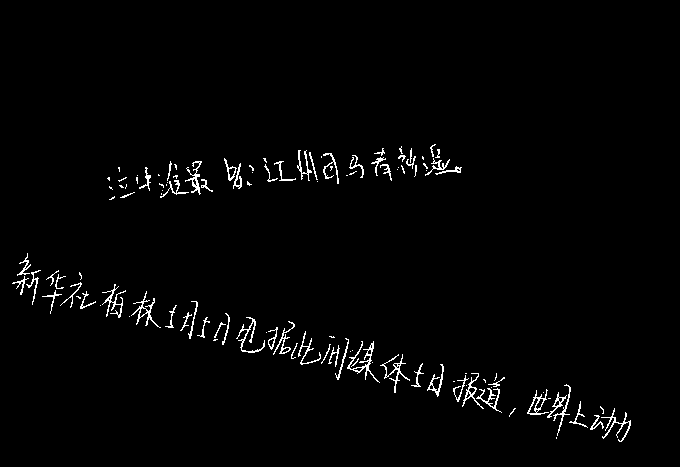 泣中谁最多?江州司马青衫湿。
新华社柏林5月5日电据此间媒体5日报道,世界上动力